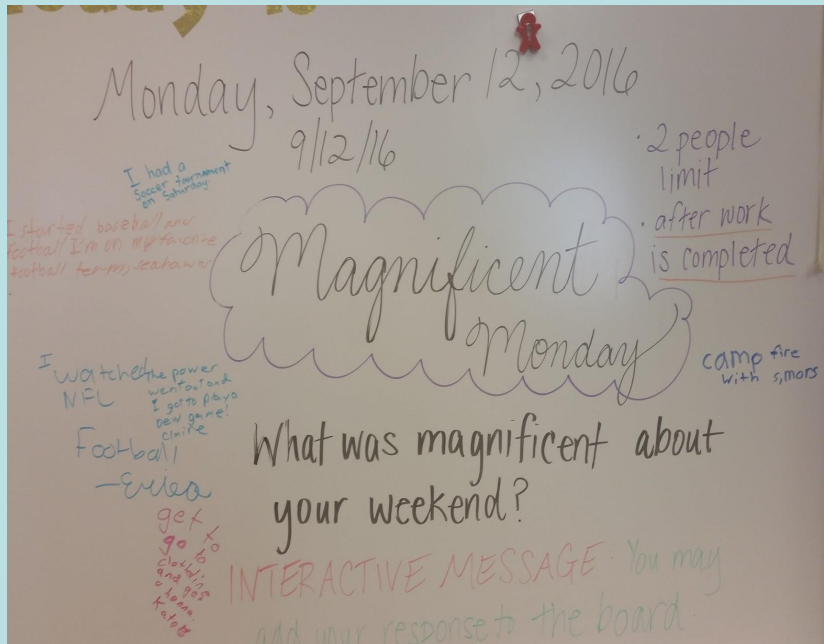 Today is
Monday, September 12, 2016
9/12/16
· 2 people
limit
· after work
is completed
I had a
Soccer tournament
on Saturday
I started baseball and
football I'm on my favorite
football team, seahawks
Magnificent
Monday
I
watched
NFL
Football
—Erica
the power
went out and
I got to play a
new game!
Claire
camp fire
with s,mors
What was magnificent about
your weekend?
get to
go to
and
INTERACTIVE MESSAGE: You may
add your response to the board